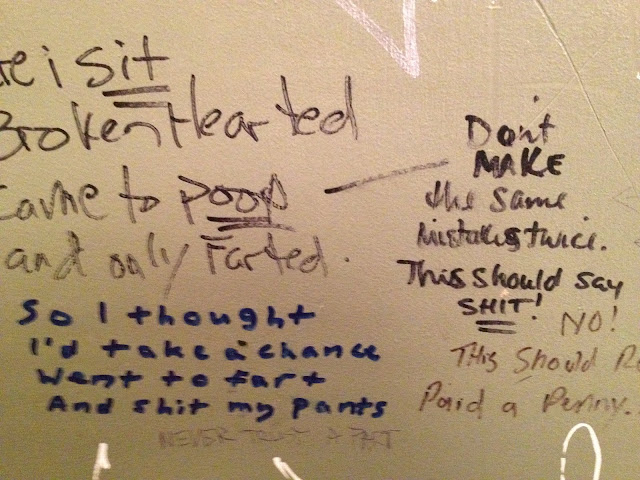 e i sit
Broken Hearted
came to poop
and only Farted.
So I thought
I'd take a chance
Went to fart
And shit my pants
NEVER TRUST A FART
Don't
MAKE
the same
mistakes twice.
This should say
SHIT!
NO!
THis Should R
Paid a Penny.